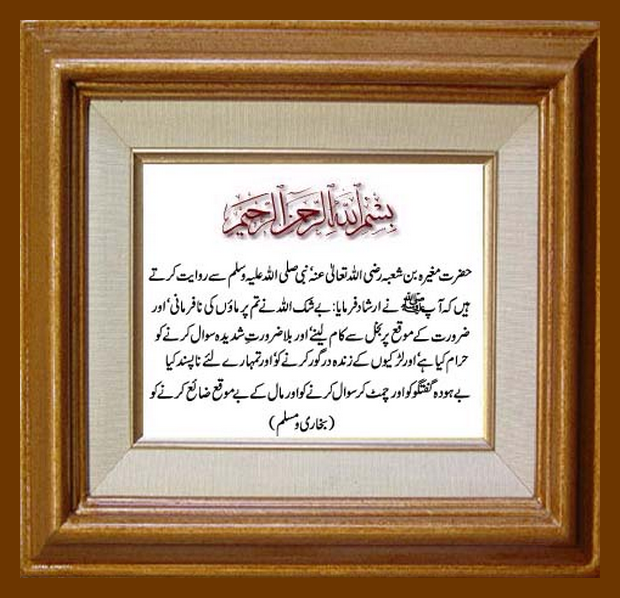 بسم الله الرحمن الرحيم
حضرت مغیرہ بن شعبہ رضی اللہ تعالیٰ عنہٗ نبی صلی اللہ علیہ وسلم سے روایت کرتے
ہیں کہ آپ ﷺ نے ارشاد فرمایا: بے شک اللہ نے تم پر ماؤں کی نافرمانی‘ اور
ضرورت کے موقع پر بخل سے کام لینے‘ اور بلا ضرورتِ شدیدہ سوال کرنے کو
حرام کیا ہے‘ اور لڑکیوں کے زندہ درگور کرنے کو‘ اور تمہارے لئے ناپسند کیا
بے ہودہ گفتگو کو اور چمٹ کر سوال کرنے کو اور مال کے بے موقع ضائع کرنے کو
(بخاری و مسلم)